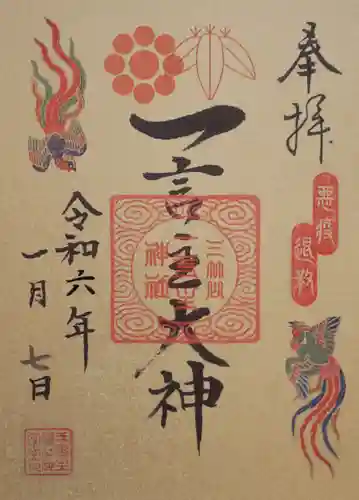 奉拝
悪疫
退散
一言主大神
令和六年
一月七日